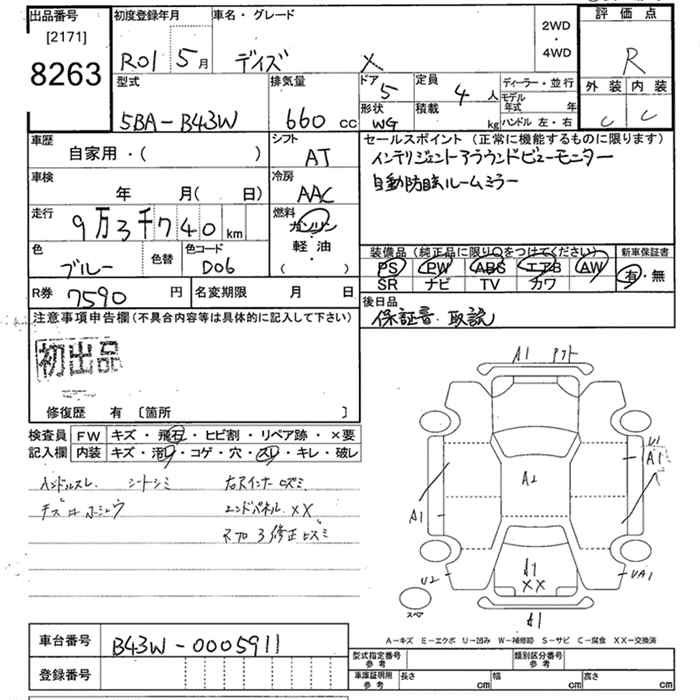 出品番号 初度登録年月 車名・グレード 2WD・4WD 評価点
[2171] 8263 R01 5月 デイズ X R
型式 排気量 ドア 5 定員 4人 ディーラー・並行 外装 内装
5BA-B43W 660 cc 形状 WG 積載 kg モデル年式 年 C C
ハンドル 左・右
車歴 シフト セールスポイント (正常に機能するものに限ります)
自家用・( ) AT インテリジェントアラウンドビューモニター
車検 冷房 自動防眩ルームミラー
年 月( 日) AAC
走行 9万3千740km 燃料 ガソリン
軽油
( )
色 ブルー 色替 色コード D06
装備品(純正品に限り○をつけてください) 新車保証書
PS PW ABS エアB AW 有・無
SR ナビ TV カワ
R券 7590 円 名変期限 月 日 後日品
保証書.取説
注意事項申告欄(不具合内容等は具体的に記入して下さい)
初出品
修復歴 有 〔箇所 〕
検査員 FW キズ・飛石・ヒビ割・リペア跡・×要
記入欄 内装 キズ・汚レ・コゲ・穴・スレ・キレ・破レ
ハンドルスレ シートシミ
エンドパネル XX
A1
A2
U1
A1
A1
A1
XX
U2
UA1
スペア
A1
A-キズ E-エクボ U-凹み W-補修跡 S-サビ C-腐食 XX-交換済
車台番号 B43W-0005911
型式指定番号 参考 類別区分番号 参考
登録番号
車庫証明用 参考 長さ cm 幅 cm 高さ cm